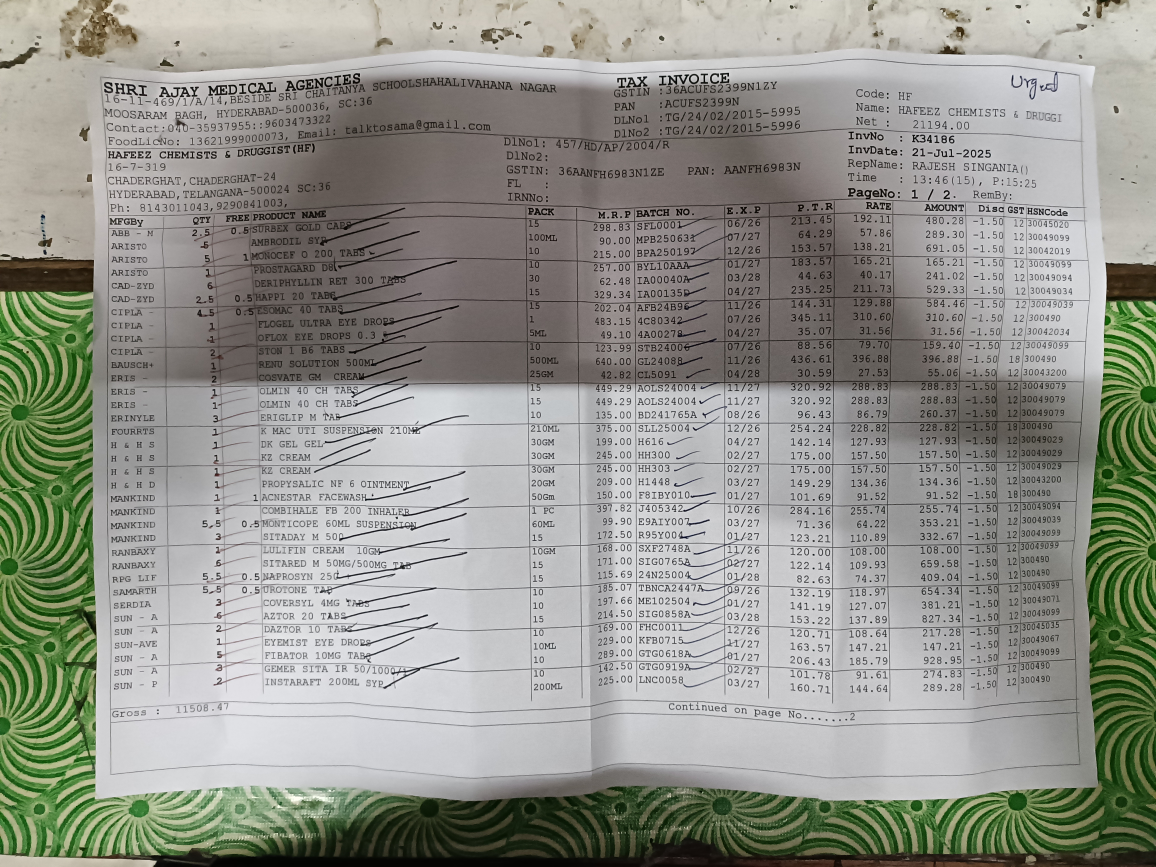 SHRI AJAY MEDICAL AGENCIES
16-11-469/1/A/14,BESIDE SRI CHAITANYA SCHOOLSHAHALIVAHANA NAGAR
MOOSARAM BAGH, HYDERABAD-500036, SC:36
Contact:040-35937955::9603473322
FoodLicNo: 13621999000073, Email: talktosama@gmail.com
TAX INVOICE
GSTIN :36ACUFS2399N1ZY
PAN :ACUFS2399N
DLNo1 :TG/24/02/2015-5995
DLNo2 :TG/24/02/2015-5996
Urged
Code: HF
Name: HAFEEZ CHEMISTS & DRUGGI
Net : 21194.00
HAFEEZ CHEMISTS & DRUGGIST(HF)
16-7-319
CHADERGHAT,CHADERGHAT-24
HYDERABAD,TELANGANA-500024 SC:36
Ph: 8143011043,9290841003,
DlNo1: 457/HD/AP/2004/R
DlNo2:
GSTIN: 36AANFH6983N1ZE PAN: AANFH6983N
FL :
IRNNo:
InvNo : K34186
InvDate: 21-Jul-2025
RepName: RAJESH SINGANIA()
Time : 13:46(15), P:15:25
PageNo: 1 / 2. RemBy:
MFGBy QTY FREE PRODUCT NAME PACK M.R.P BATCH NO. E.X.P P.T.R RATE AMOUNT Disc GST HSNCode
ABB - M 2.5 0.5 SURBEX GOLD CAPS 15 298.83 SFL0001 06/26 213.45 192.11 480.28 -1.50 12 30045020
ARISTO 5 AMBRODIL SYP 100ML 90.00 MPB250631 07/27 64.29 57.86 289.30 -1.50 12 30049099
ARISTO 5 1 MONOCEF O 200 TABS 10 215.00 BPA250197 12/26 153.57 138.21 691.05 -1.50 12 30042019
ARISTO 1 PROSTAGARD D8 10 257.00 BYL10AAA 01/27 183.57 165.21 165.21 -1.50 12 30049099
CAD-ZYD 6 DERIPHYLLIN RET 300 TABS 30 62.48 IA00040A 03/28 44.63 40.17 241.02 -1.50 12 30049094
CAD-ZYD 2.5 0.5 HAPPI 20 TABS 15 329.34 IA00135B 04/27 235.25 211.73 529.33 -1.50 12 30049034
CIPLA - 4.5 0.5 ESOMAC 40 TABS 15 202.04 AFB24B96 11/26 144.31 129.88 584.46 -1.50 12 30049039
CIPLA - 1 FLOGEL ULTRA EYE DROPS 1 483.15 4C80342 07/26 345.11 310.60 310.60 -1.50 12 300490
CIPLA - 1 OFLOX EYE DROPS 0.3 5ML 49.10 4A00278 04/27 35.07 31.56 31.56 -1.50 12 30042034
CIPLA - 2 STON 1 B6 TABS 10 123.99 STB24006 07/26 88.56 79.70 159.40 -1.50 12 30049099
BAUSCH+ 1 RENU SOLUTION 500ML 500ML 640.00 GL24088 11/26 436.61 396.88 396.88 -1.50 18 300490
ERIS - 2 COSVATE GM CREAM 25GM 42.82 CL5091 04/28 30.59 27.53 55.06 -1.50 12 30043200
ERIS - 1 OLMIN 40 CH TABS 15 449.29 AOLS24004 11/27 320.92 288.83 288.83 -1.50 12 30049079
ERIS - 1 OLMIN 40 CH TABS 15 449.29 AOLS24004 11/27 320.92 288.83 288.83 -1.50 12 30049079
ERINYLE 3 ERIGLIP M TAB 10 135.00 BD241765A 08/26 96.43 86.79 260.37 -1.50 12 30049079
FOURRTS 1 K MAC UTI SUSPENSION 210ML 210ML 375.00 SLL25004 12/26 254.24 228.82 228.82 -1.50 18 300490
H & H S 1 DK GEL GEL 30GM 199.00 H616 04/27 142.14 127.93 127.93 -1.50 12 30049029
H & H S 1 KZ CREAM 30GM 245.00 HH300 02/27 175.00 157.50 157.50 -1.50 12 30049029
H & H S 1 KZ CREAM 30GM 245.00 HH303 02/27 175.00 157.50 157.50 -1.50 12 30049029
H & H D 1 PROPYSALIC NF 6 OINTMENT 20GM 209.00 H1448 03/27 149.29 134.36 134.36 -1.50 12 30043200
MANKIND 1 1 ACNESTAR FACEWASH 50Gm 150.00 F8IBY010 01/27 101.69 91.52 91.52 -1.50 18 300490
MANKIND 1 COMBIHALE FB 200 INHALER 1 PC 397.82 J405342 10/26 284.16 255.74 255.74 -1.50 12 30049094
MANKIND 5.5 0.5 MONTICOPE 60ML SUSPENSION 60ML 99.90 E9AIY007 03/27 71.36 64.22 353.21 -1.50 12 30049039
MANKIND 3 SITADAY M 500 15 172.50 R95Y004 01/27 123.21 110.89 332.67 -1.50 12 30049099
RANBAXY 1 LULIFIN CREAM 10GM 10GM 168.00 SXF2748A 11/26 120.00 108.00 108.00 -1.50 12 30049099
RANBAXY 6 SITARED M 50MG/500MG TAB 15 171.00 SIG0765A 02/27 122.14 109.93 659.58 -1.50 12 300490
RPG LIF 5.5 0.5 NAPROSYN 250 15 115.69 24N25004 01/28 82.63 74.37 409.04 -1.50 12 300490
SAMARTH 5.5 0.5 UROTONE TAB 10 185.07 TBNCA2447A 09/26 132.19 118.97 654.34 -1.50 12 30049099
SERDIA 3 COVERSYL 4MG TABS 10 197.66 ME102504 01/28 141.19 127.07 381.21 -1.50 12 30049071
SUN - A 6 AZTOR 20 TABS 15 214.50 SIG0858A 03/28 153.22 137.89 827.34 -1.50 12 30049099
SUN - A 2 DAZTOR 10 TABS 10 169.00 FHC0011 12/26 120.71 108.64 217.28 -1.50 12 30045035
SUN-AVE 1 EYEMIST EYE DROPS 10ML 229.00 KFB0715 11/27 163.57 147.21 147.21 -1.50 12 30049067
SUN - A 5 FIBATOR 10MG TABS 10 289.00 GTG0618A 01/27 206.43 185.79 928.95 -1.50 12 30049099
SUN - A 3 GEMER SITA IR 50/1000/1 10 142.50 GTG0919A 02/27 101.78 91.61 274.83 -1.50 12 300490
SUN - P 2 INSTARAFT 200ML SYP 200ML 225.00 LNC0058 03/27 160.71 144.64 289.28 -1.50 12 300490
Gross : 11508.47
Continued on page No.......2